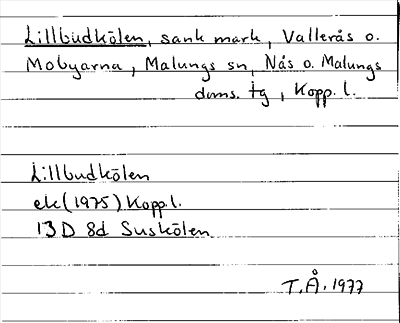 Lillbudkölen, sank mark, Vallerås o.
Mobyarna, Malungs sn, Nås o. Malungs
doms. tg, Kopp. l.
Lillbudkölen
ek (1975) Kopp.l.
13 D 8d Suskölen
T.Å. 1977